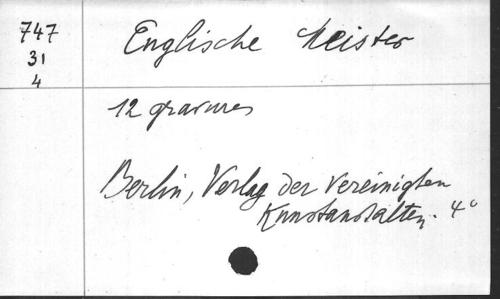 747
31
4
Englische Meister
12 gravures
Berlin, Verlag der Vereinigten
Kunstanstalten. 4°